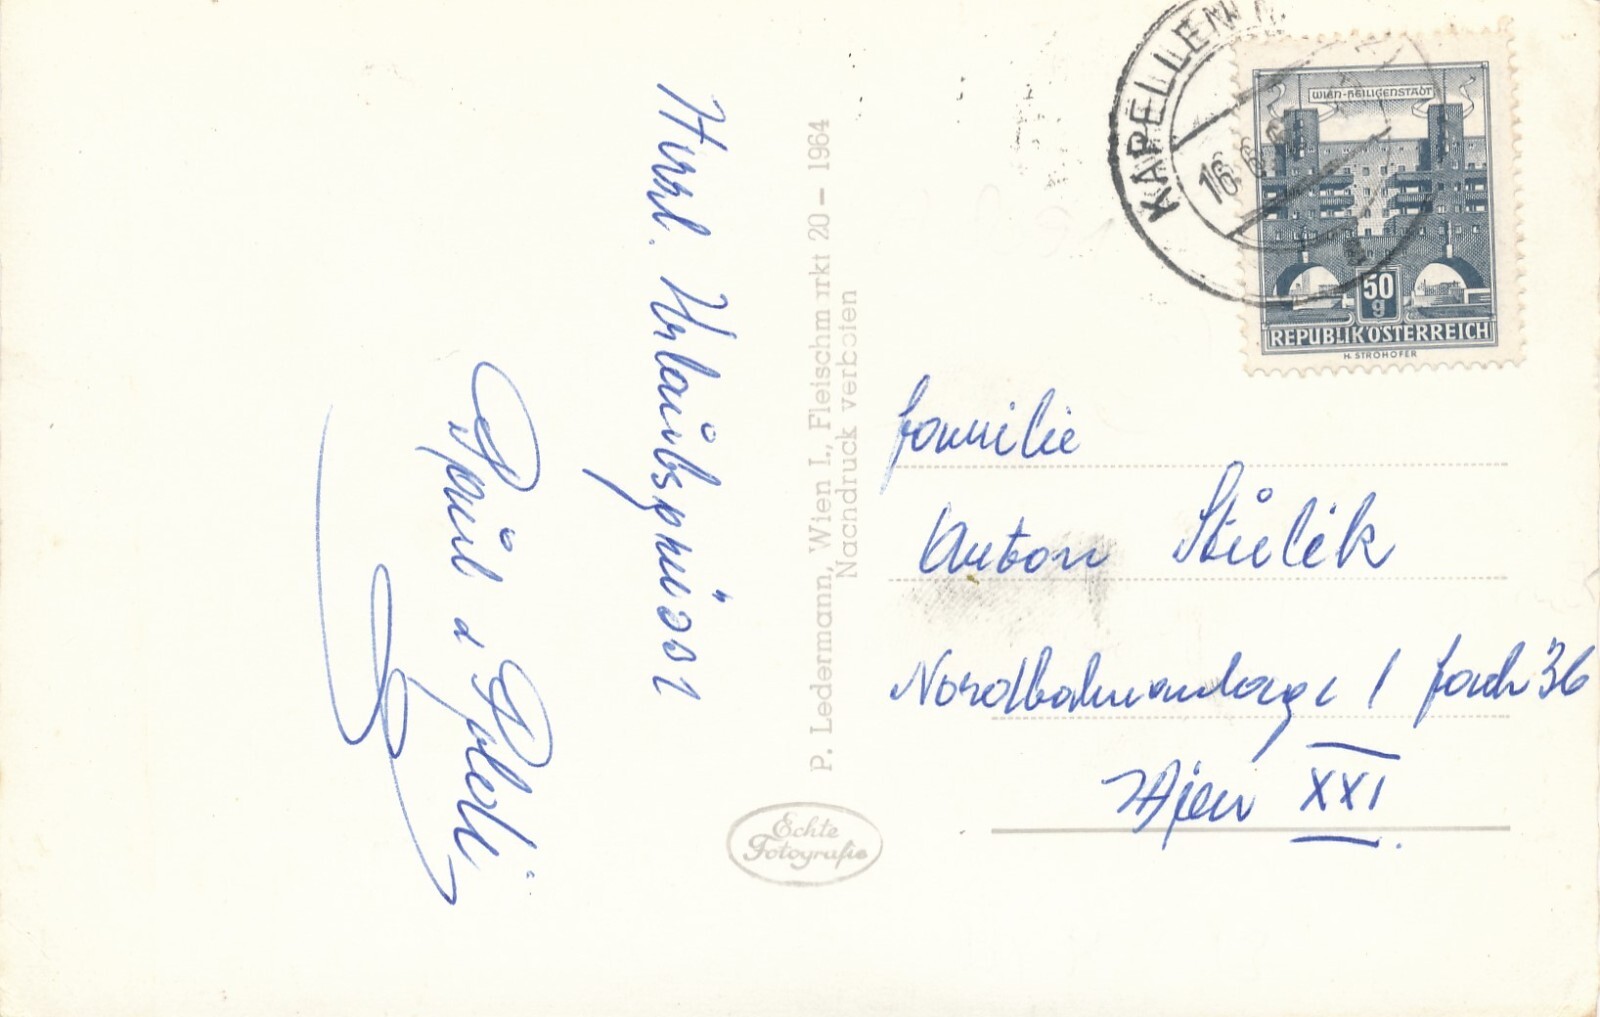 Herzl. Urlaubsgrüsse
P. Ledermann, Wien I., Fleischmarkt 20 – 1964
Nachdruck verboten
Echte
Fotografie
KAPELLEN
16.6.6
WIEN-HEILIGENSTADT
50
g
REPUBLIK ÖSTERREICH
H. STROHOFER
Familie
Anton Stulik
Nordbahnanlage 1 Fach 36
Wien XXI.